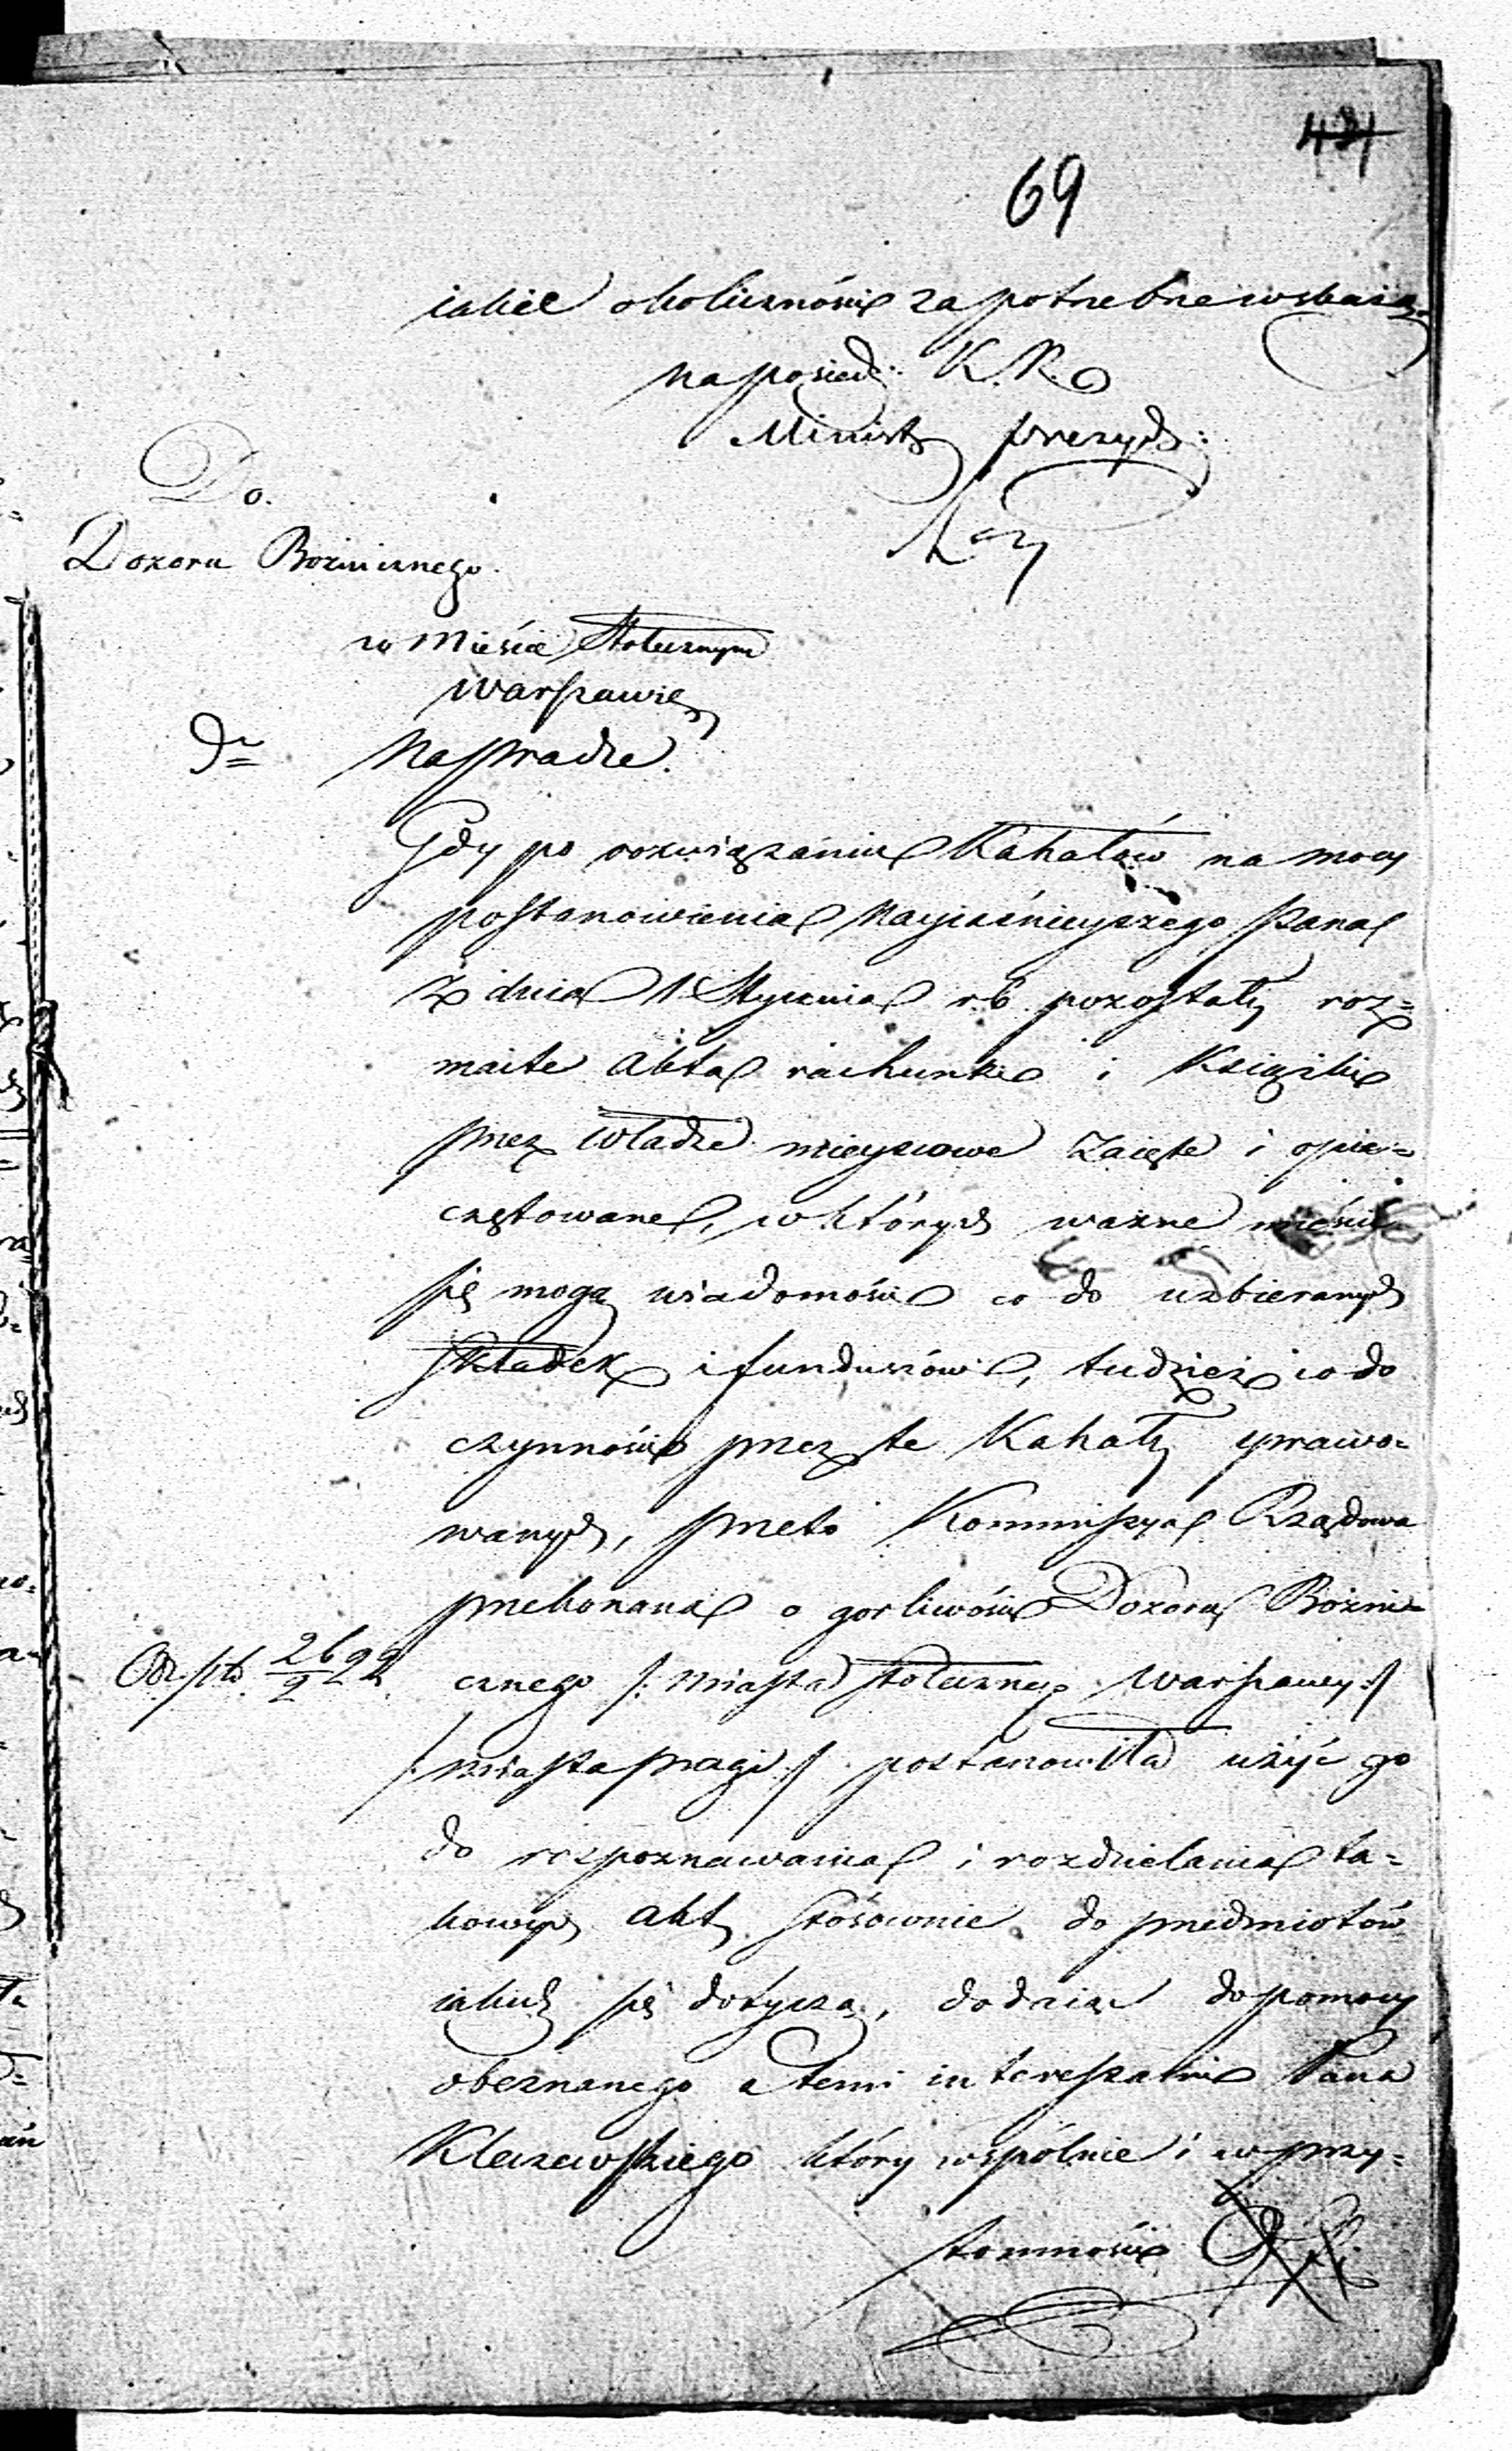 431
69
iakie okoliczności za potrzebne wskażą.
na posiedz: K. R.
Ministr prezyd:
Do.
Dozoru Bożnicznego.
w Mieście Stołecznym
Warszawie
na pradze.
Gdy po rozwiązaniu Kahałów na mocy
postanowienia Nayiaśnieyszego Pana
z dnia 1 Stycznia r b pozostały roz=
maite Akta rachunki i Książki
przez Władze mieyscowe zaięte i opie=
czętowane, w których ważne mieścić
się mogą wiadomości co do uzbieranych
składek i funduszów, tudzież co do
czynności przez te Kahały sprawo=
wanych, przeto Kommissya Rządowa
przekonana o gorliwości Dozoru Bożni=
cznego /: Miasta stołecznego Warszawy :/
/: miasta pragi :/ postanowiła użyć go
do rozpoznawania i rozdzielania ta=
kowych Akt stósownie do przedmiotów
iakich się dotyczą, dodaiąc do pomocy
obeznanego z temi interessami Pana
który wspólnie i w przy=
tomności